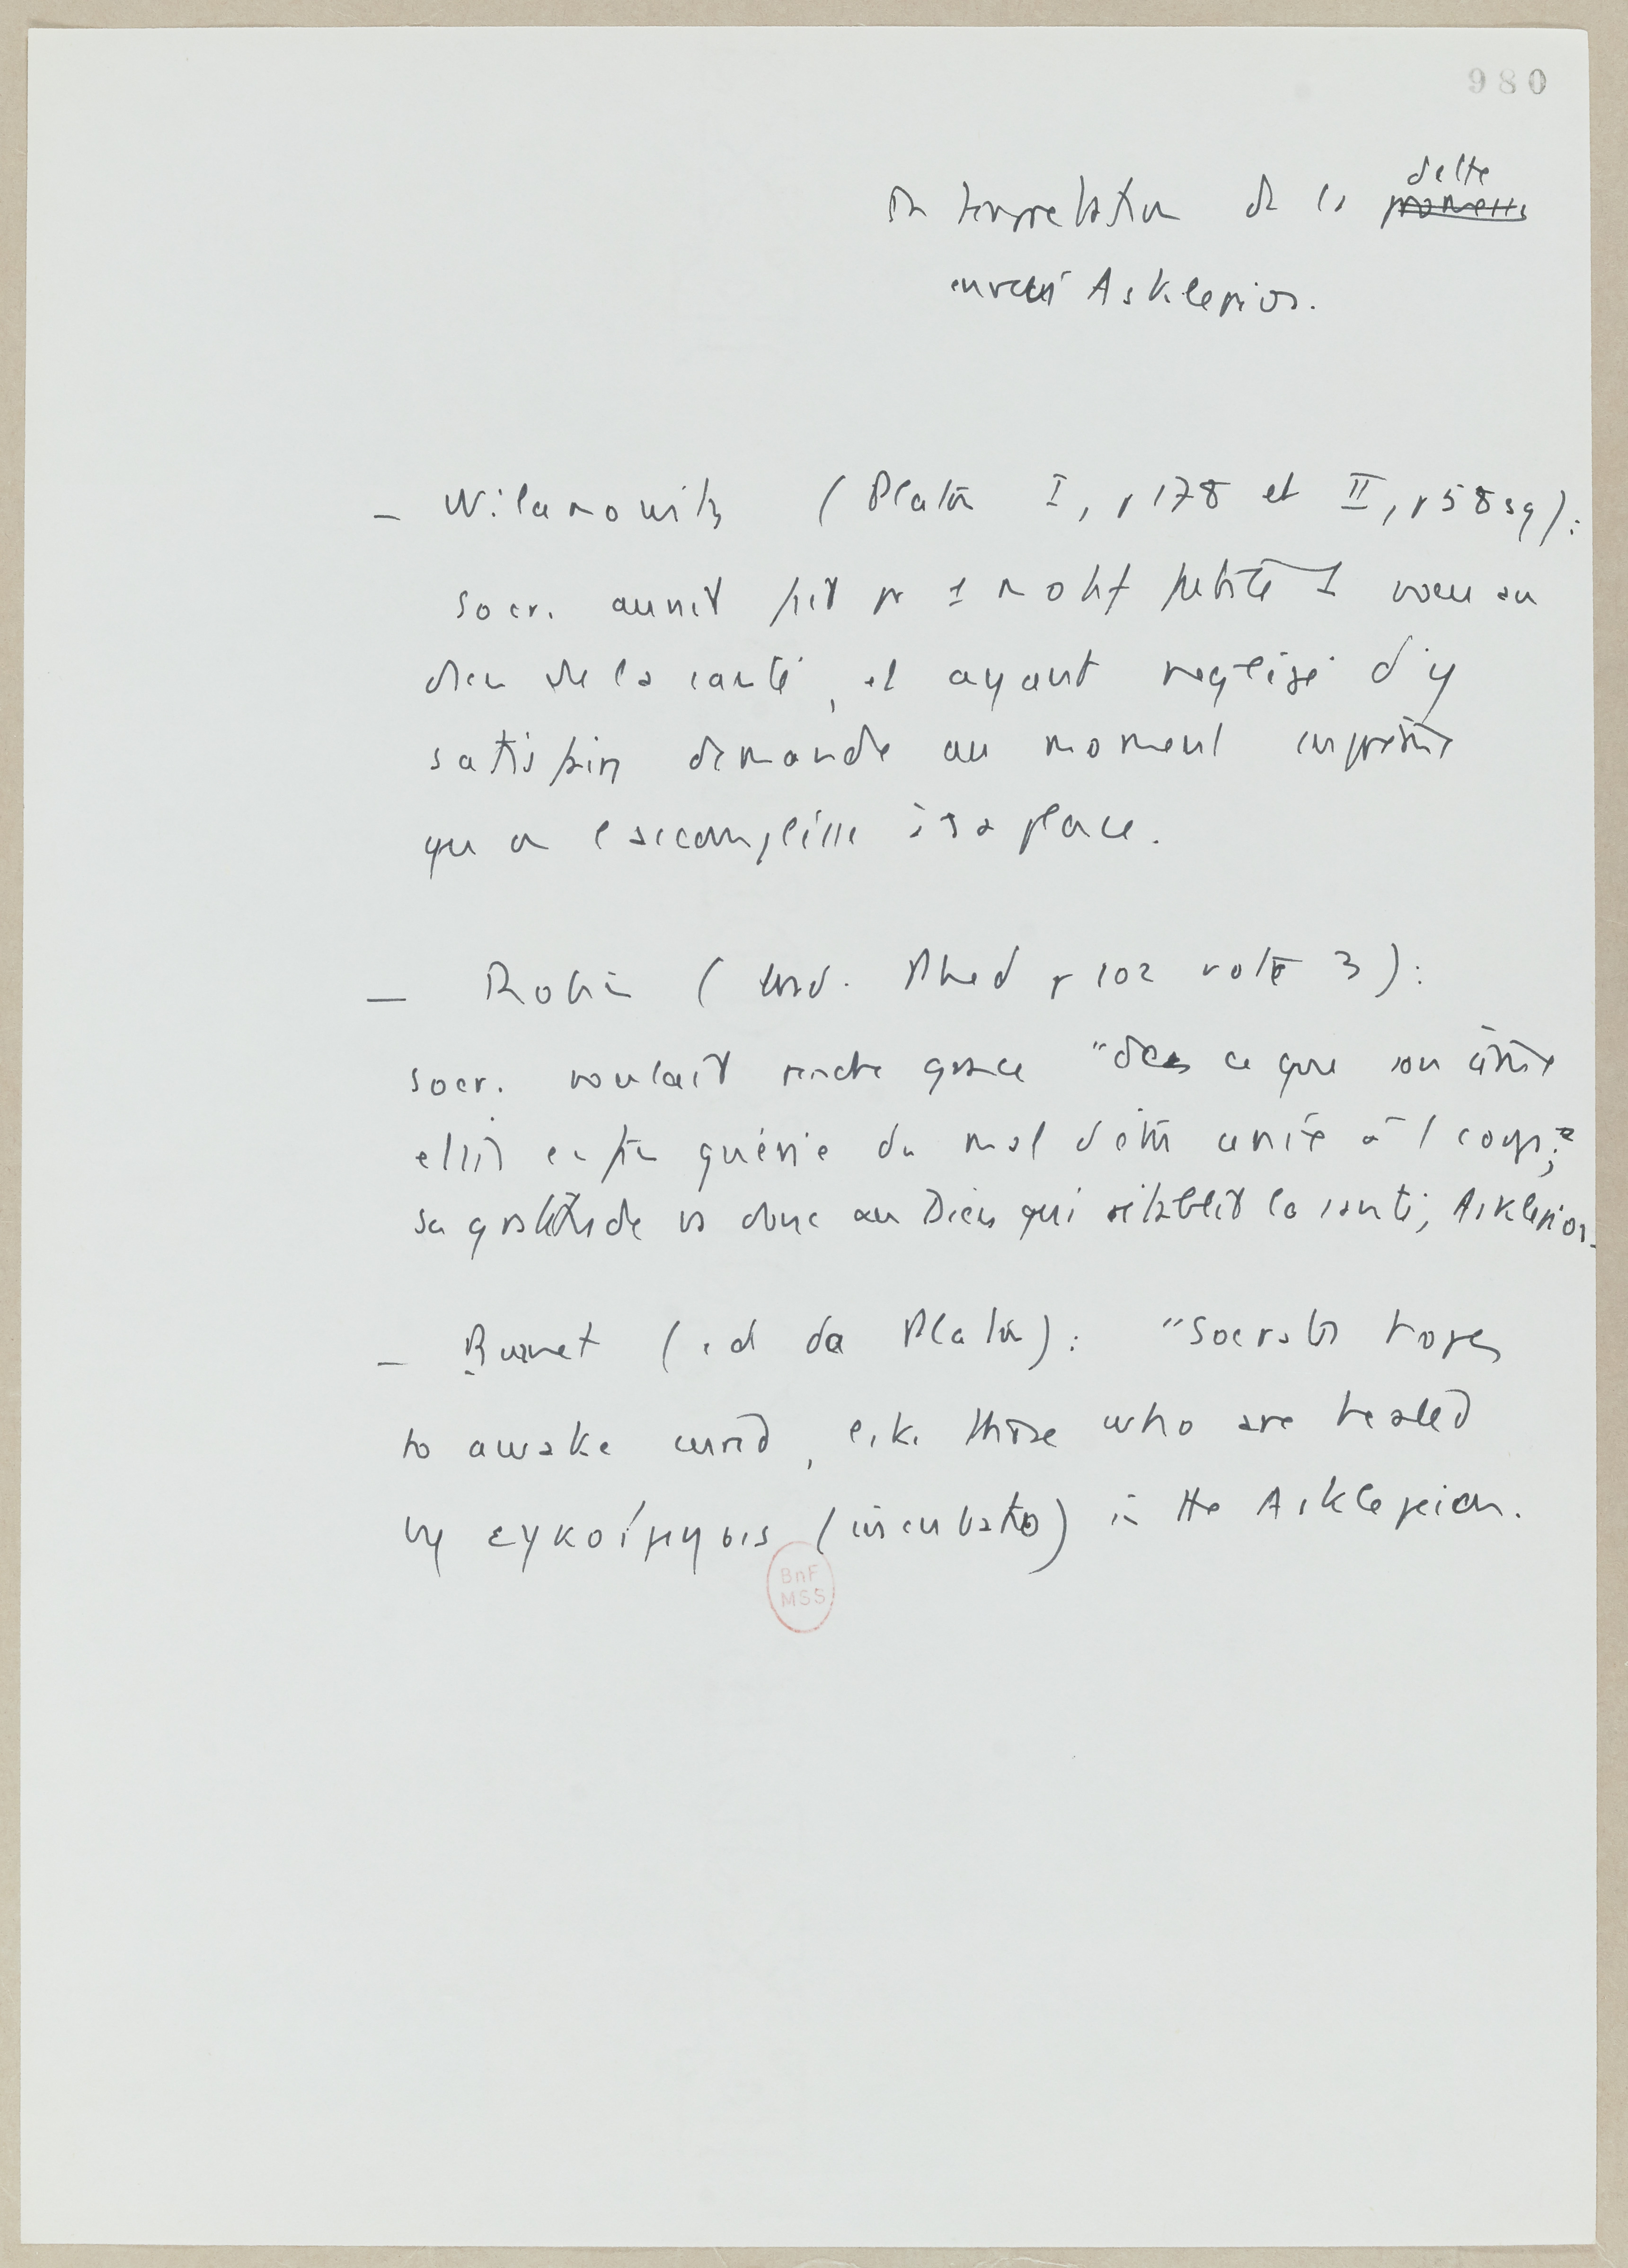 980
Interpretation de la dette
~~promesse~~
envers Asklepios.
– Wilamowitz (Platon I, p 178 et II, p 58 sq) :
Socr. aurait fait pr 1 motif futile 1 voeu au
dieu de la santé, et ayant negligé d'y
satisfaire demande au moment suprême
qu'on l'accomplisse à sa place.
– Robin (trad. Phed p 102 note 3) :
Socr. voulait rendre grace "de ce que son âme
est enfin guérie du mal d'être unie à 1 corps;
sa gratitude va donc au Dieu qui rétablit la santé, Asklepios.
– Burnet (ed de Platon) : "Socrates hopes
to awake cured, like those who are healed
by εγκοίμησις (incubatio) in the Asklepieion.
BnF
MSS